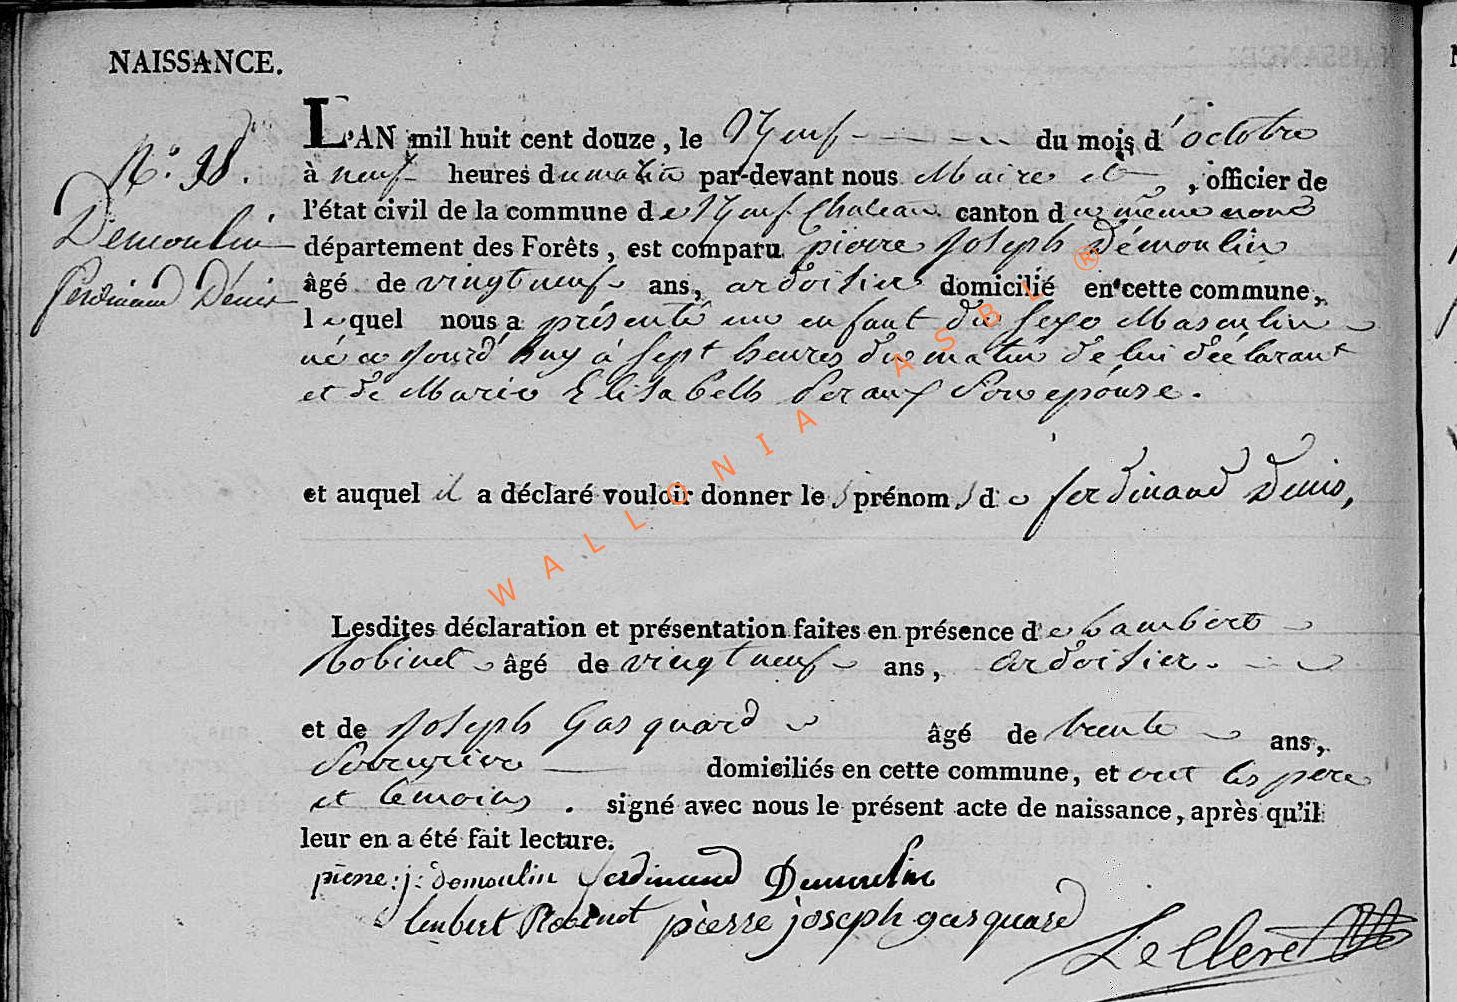 NAISSANCE.
N.º 98.
Demoulin
ferdinand Denis
L'AN mil huit cent douze, le Neuf du mois d'octobre
à neuf heures du matin par-devant nous Maire et , officier de
l'état civil de la commune de Neufchateau canton du même nom
département des Forêts, est comparu pierre Joseph Démoulin
âgé de vingt neuf ans, ardoisier domicilié en cette commune,
lequel nous a présenté un enfant du sexe Masculin
né ce jourd'huy à sept heures du matin de lui déclarant
et de Marie Elisabeth son epouse.
et auquel il a déclaré vouloir donner les prénoms de ferdinand Denis,
Lesdites déclaration et présentation faites en présence de Lambert
Robinet âgé de vingt neuf ans, ardoisier.
et de Joseph Gasquard âgé de trente ans,
Serrurier domiciliés en cette commune, et ont les pere
et temoins . signé avec nous le présent acte de naissance, après qu'il
leur en a été fait lecture.
pierre: j: demoulin ferdinand Demoulin
lambert Robinet pierre joseph gasquard
LeClerc
WALLONIA ASBL ®